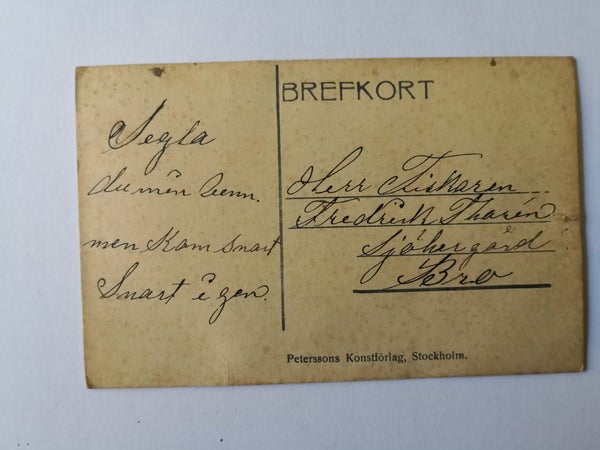 BREFKORT
Segla
du min venn.
men Kom snart
Snart i gen.
Herr Fiskaren
Fredrick Tharén
Sjöhergård
Bro
Peterssons Konstförlag, Stockholm.